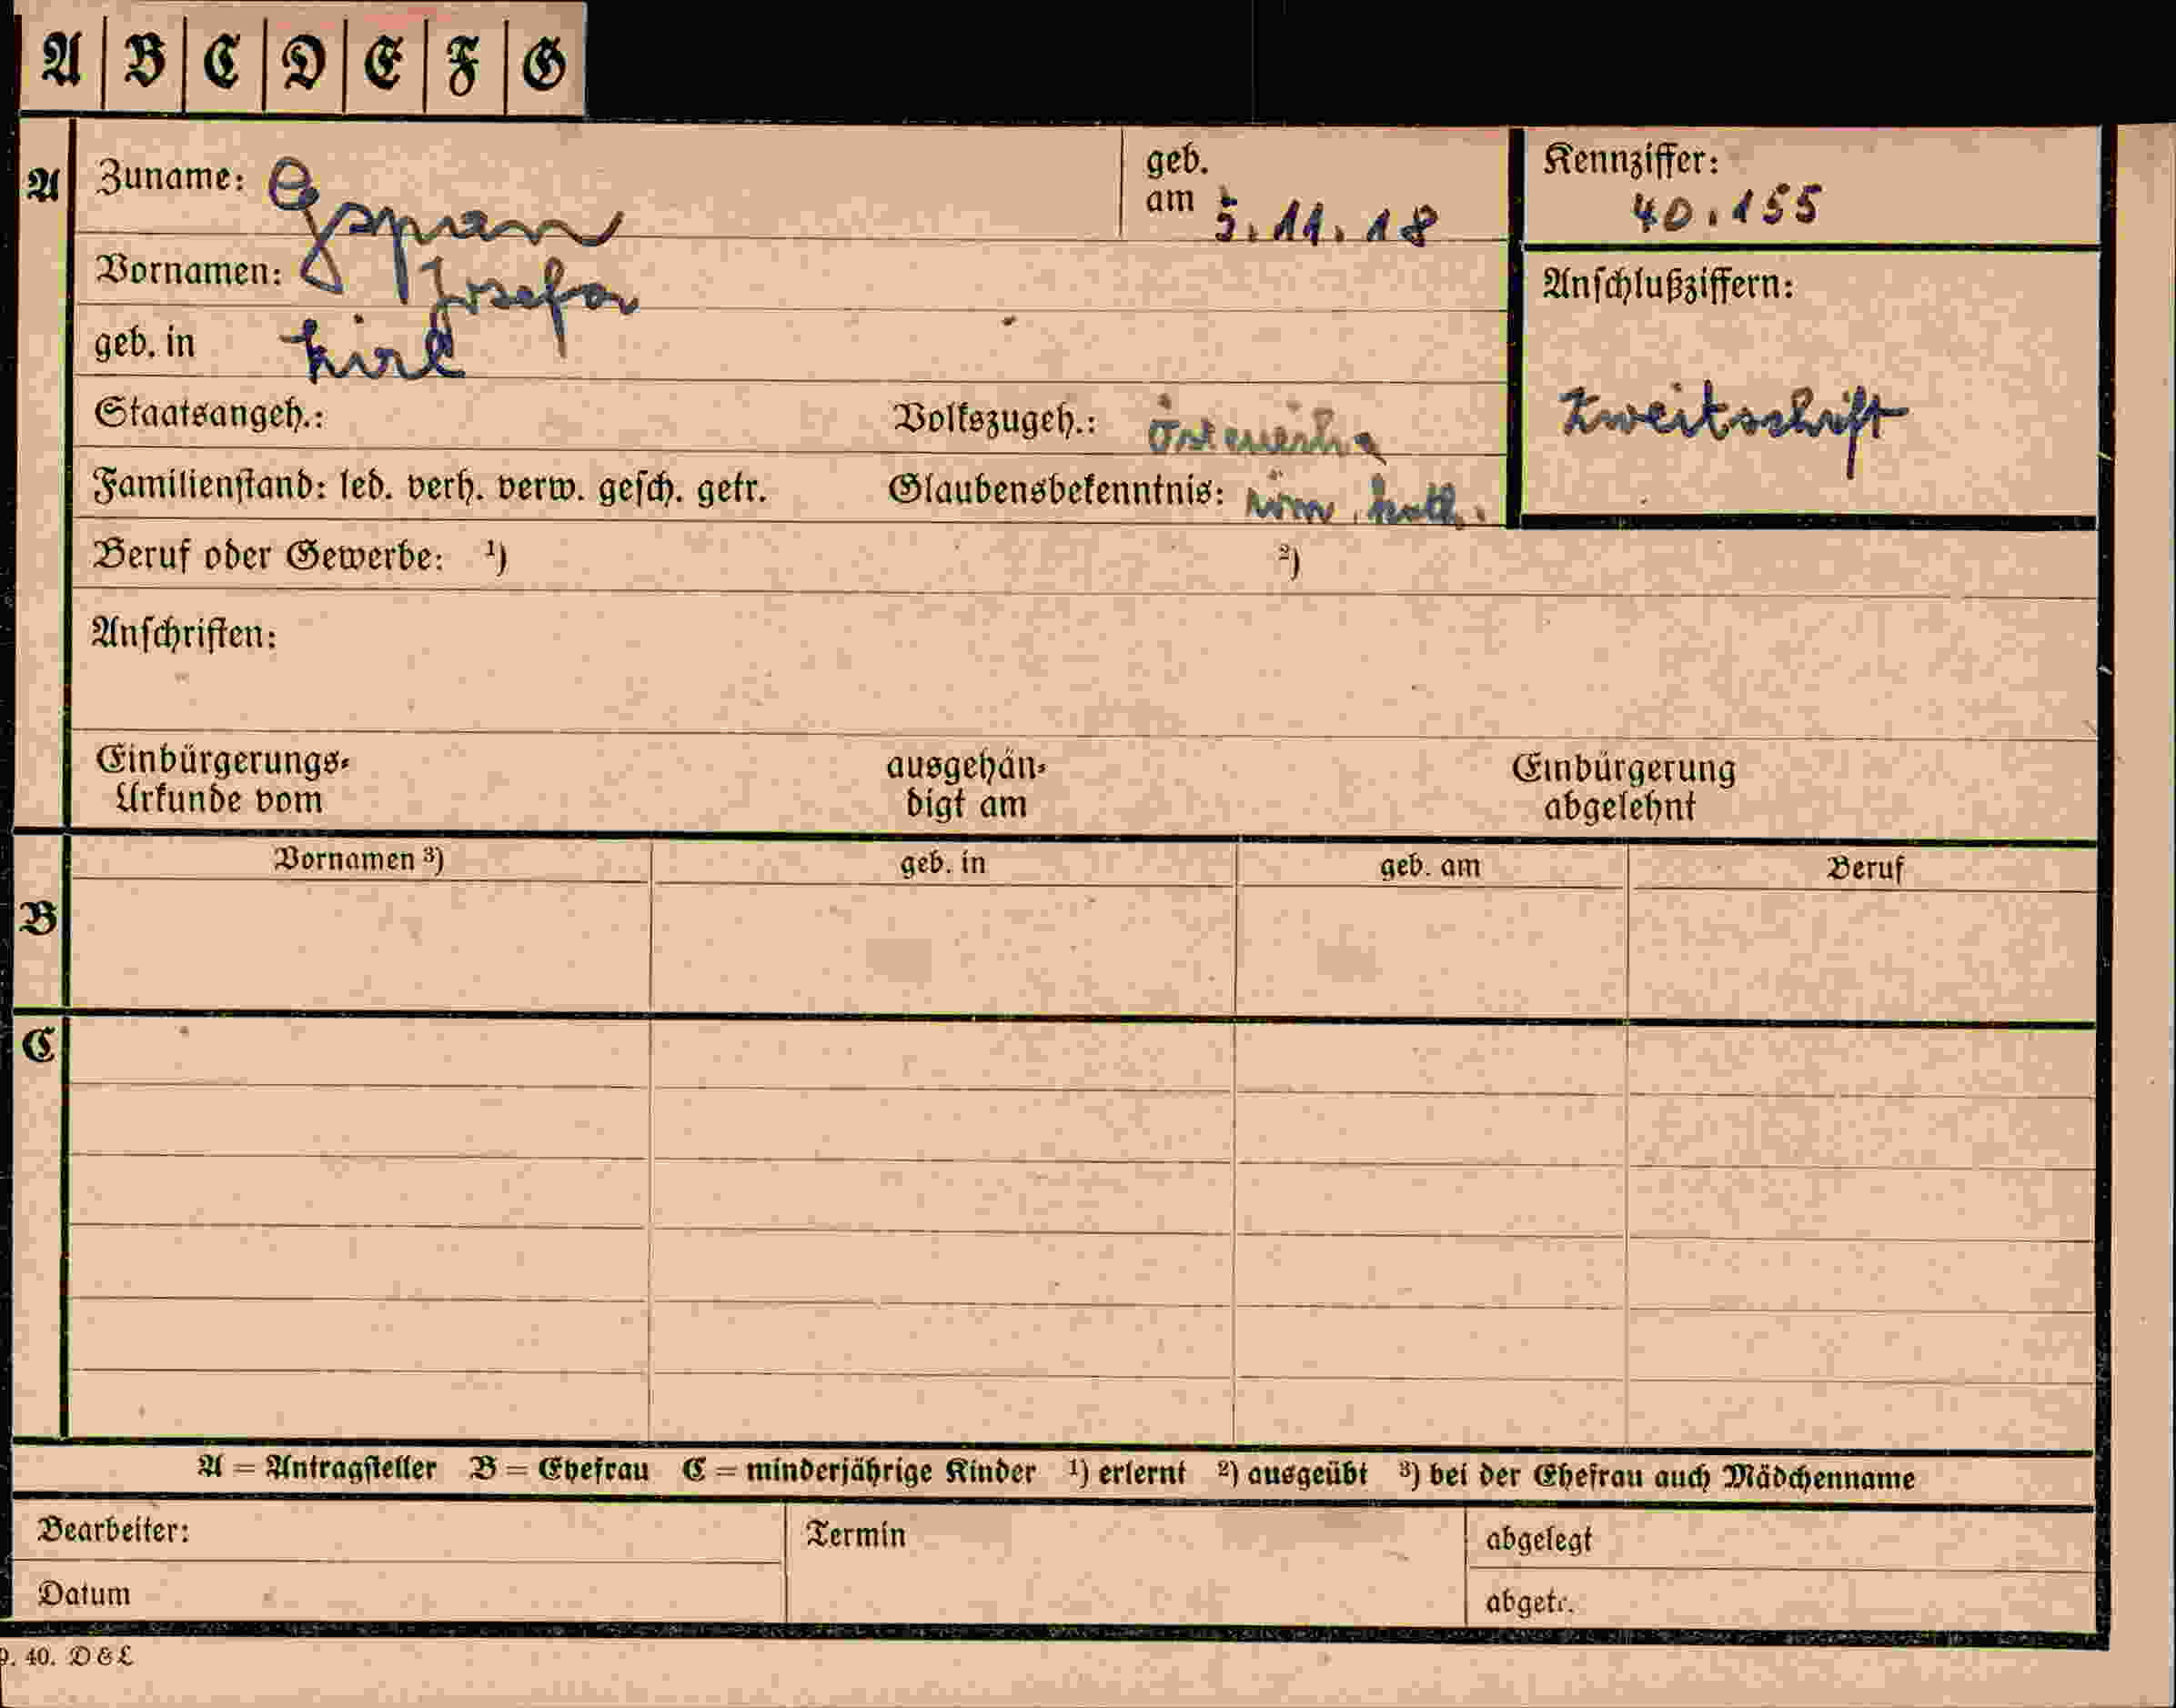 A B C D E F G
A
Zuname: Gspan
geb. am 5.11.18
Kennziffer: 40.155
Vornamen: Josefa
Anschlußziffern:
geb. in Zirl
Zweitschrift
Staatsangeh.: Volkszugeh.:
Familienstand: led. verh. verw. gesch. getr. Glaubensbekenntnis: röm. kath.
Beruf oder Gewerbe: ¹) ²)
Anschriften:
Einbürgerungs- ausgehän- Einbürgerung
Urkunde vom digt am abgelehnt
Vornamen ³) geb. in geb. am Beruf
B
C
A = Antragsteller B = Ehefrau C = minderjährige Kinder ¹) erlernt ²) ausgeübt ³) bei der Ehefrau auch Mädchenname
Bearbeiter: Termin abgelegt
Datum abgetr.
9. 40. D & L